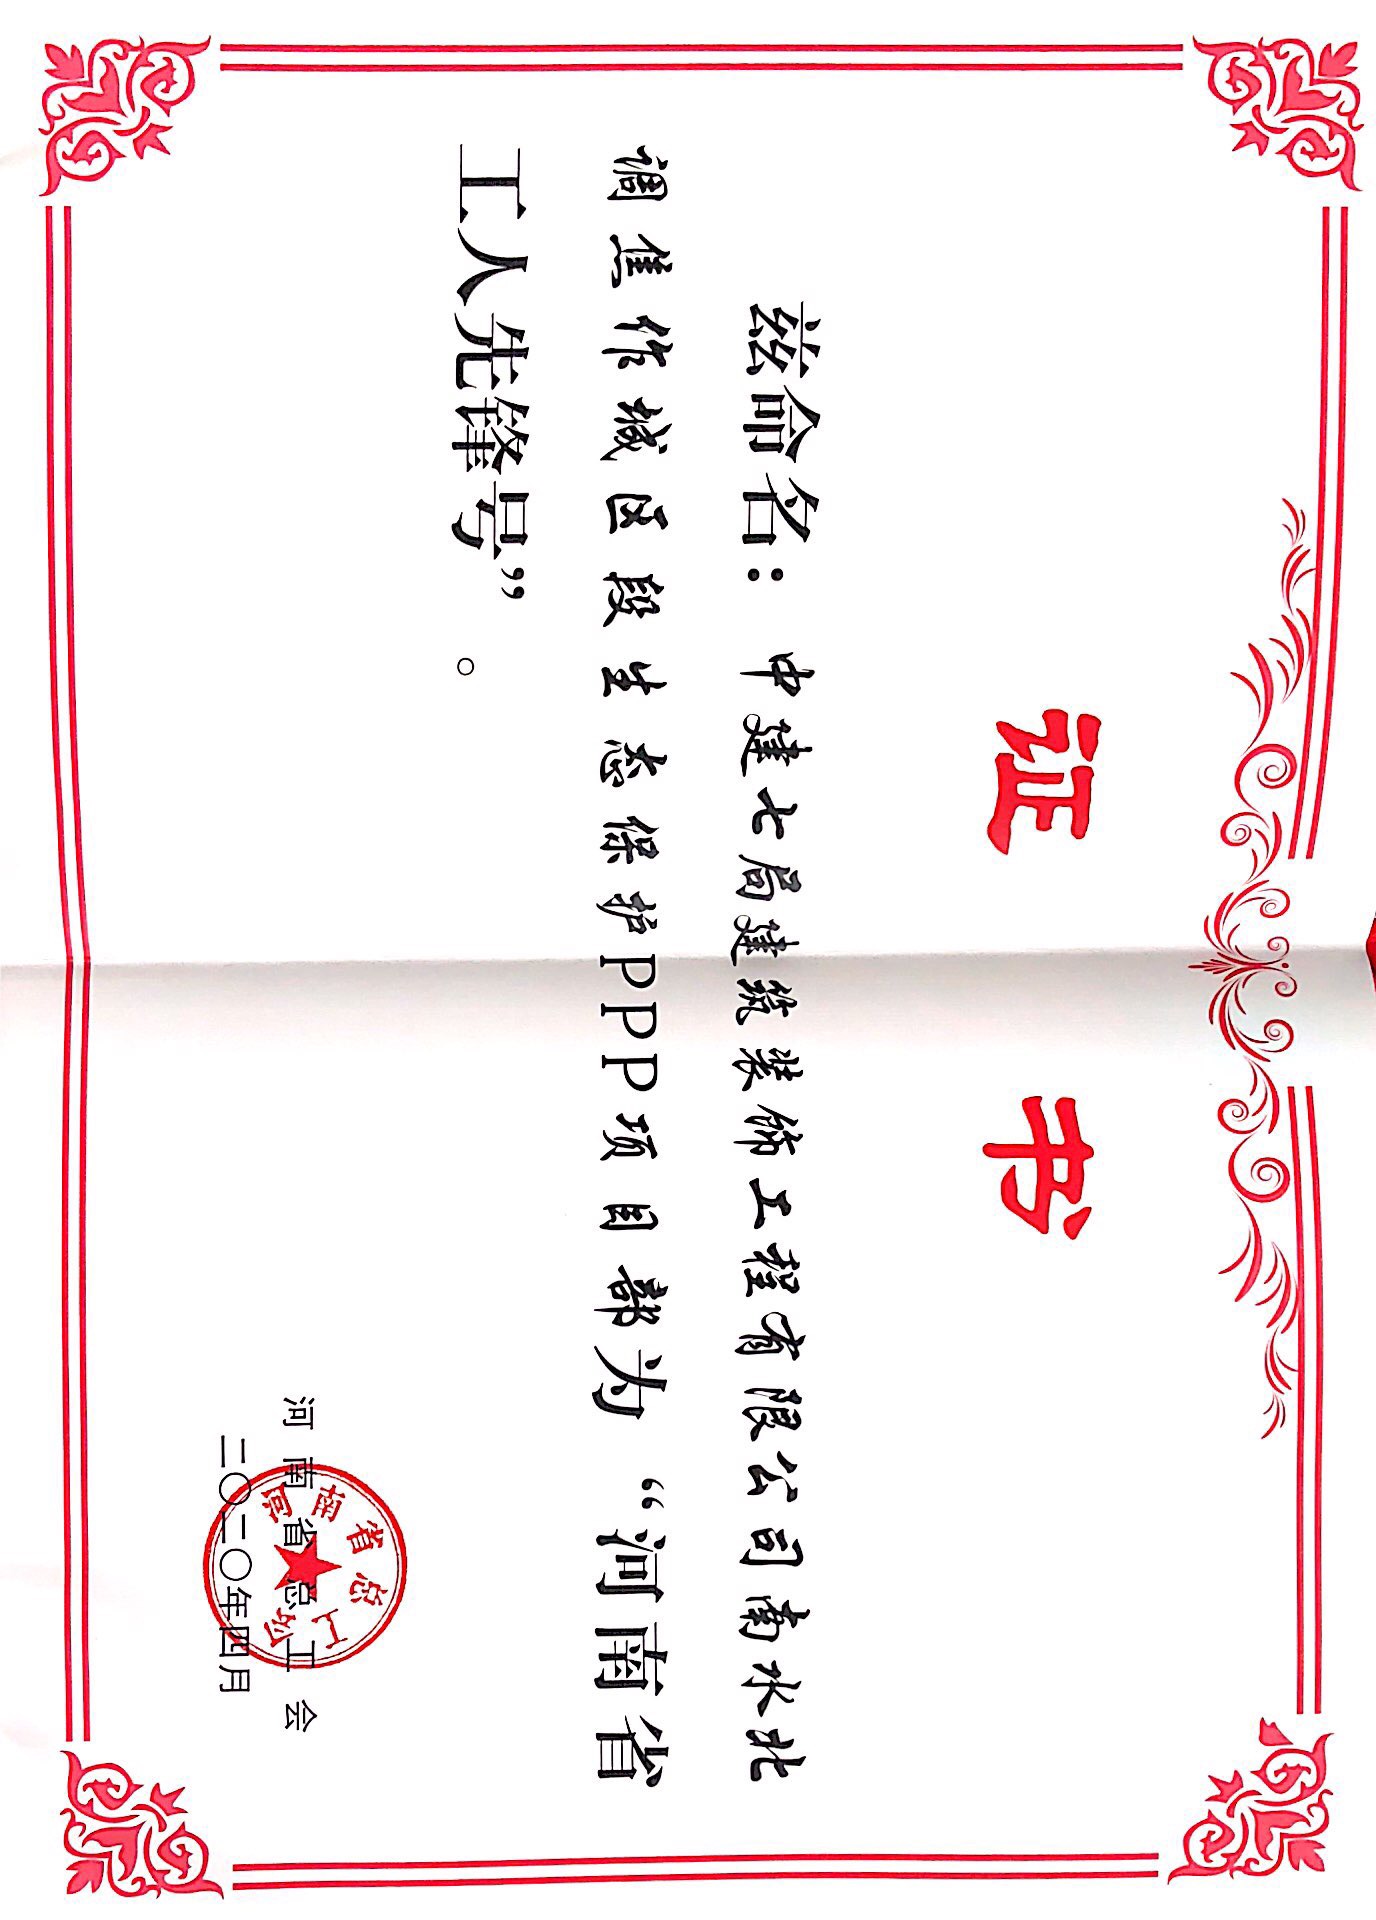 证书
兹命名：中建七局建筑装饰工程有限公司南水北
调焦作城区段生态保护PPP项目部为“河南省
工人先锋号”。
河南省总工会
二〇二〇年四月
河南省总工会